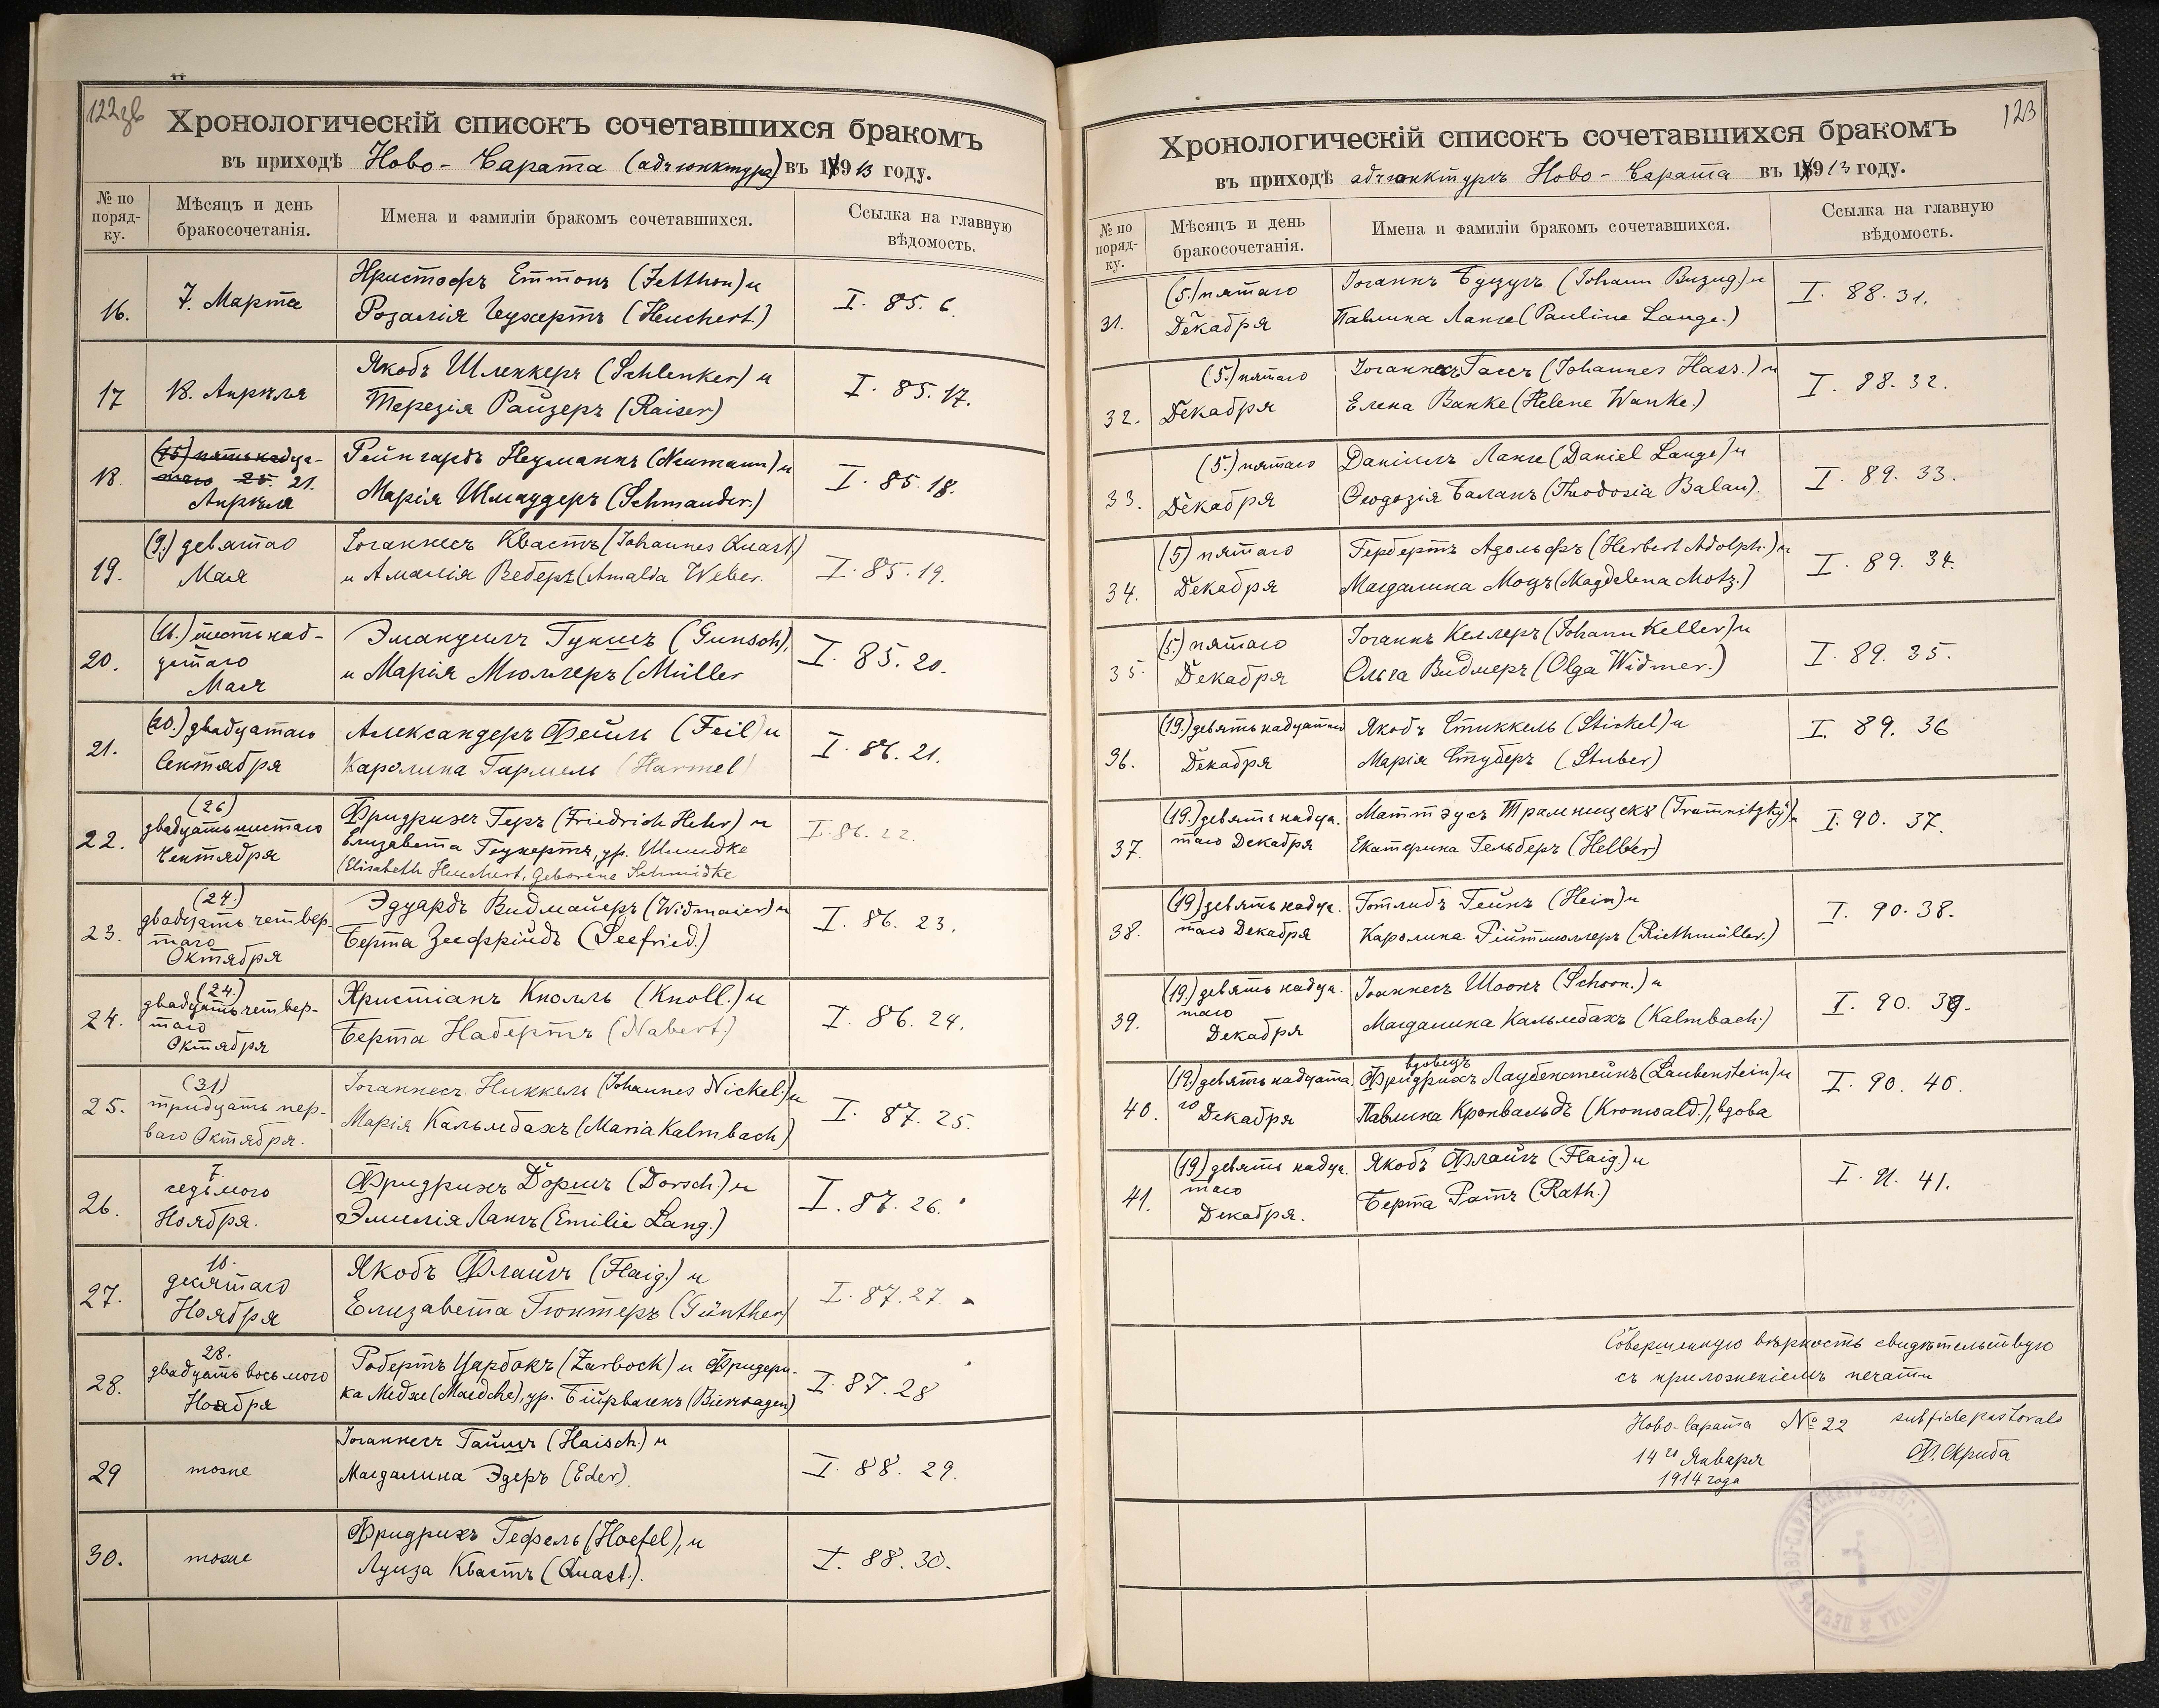 122зв
Хронологическій списокъ сочетавшихся бракомъ
въ приходѣ Ново-Сарата (адъюнктура) въ 1913 году.
№ по поряд-ку.
Мѣсяцъ и день бракосочетанія.
Имена и фамиліи бракомъ сочетавшихся.
Ссылка на главную вѣдомость.
16. 7. Марта Христофъ Еттонъ (Jetthon) и I. 85. 6.
Розалія Геухертъ (Heuchert.)
17 18. Апрѣля Якобъ Шленкеръ (Schlenker) и I. 85. 17.
Терезія Райзеръ (Raiser)
18. (15) пятьнадца-
таго 25. 21.
Апрѣля
Рейнгардъ Неуманнъ (Neumann) и I. 85 18.
Марія Шмаудеръ (Schmauder.)
19. (9.) девятаго
Мая
Іоганнесъ Квастъ (Johannes Quast.)
и Амалія Веберъ (Amalda Weber. I. 85. 19.
20. (16.) шестьнад-
цатаго
Мая
Эмануилъ Гуншъ (Gunsch), I. 85. 20.
и Марія Мюллеръ (Müller
21. (20.) двадцатаго
Сентября
Александеръ Фейль (Feil) и I. 86. 21.
Каролина Гармель (Harmel)
22. (26)
двадцатьшестаго
Сентября
Фридрихъ Геръ (Friedrich Hehr) и I. 86. 22.
Елизавета Геухертъ, ур. Шмидке
(Elisabeth Heuchert, geborene Schmidke
23. (24.)
двадцать четвер-
таго
Октября
Эдуардъ Видмайеръ (Widmaier) и I. 86. 23.
Берта Зеефрійдъ (Seefried.)
24. (24.)
двадцать четвер-
таго
Октября
Христіанъ Кнолль (Knoll.) и I. 86. 24.
Берта Набертъ (Nabert.)
25. (31)
тридцать пер-
ваго Октября.
Іоганнесъ Никкель (Johannes Nickel.) и I. 87. 25.
Марія Кальмбахъ (Maria Kalmbach)
26. 7.
седьмого
Ноября.
Фридрихъ Доршъ (Dorsch.) и I. 87. 26.
Эмилія Лангъ (Emilie Lang.)
27. 10.
десятаго
Ноября
Якобъ Флайгъ (Flaig.) и I. 87. 27.
Елизавета Гюнтеръ (Günther)
28. 28.
двадцать восьмого
Ноября
Робертъ Царбокъ (Zarbock) и Фридери-
ка Медхе (Maedche), ур. Бійрвагенъ (Bierwagen) I. 87. 28
29 тоже Іоганнесъ Гайшъ (Haisch.) и I. 88. 29.
Магдалина Эдеръ (Eder).
30. тоже Фридрихъ Гефель (Hoefel), и I. 88. 30.
Луиза Квастъ (Quast.).
123
Хронологическій списокъ сочетавшихся бракомъ
въ приходѣ адъюнктурѣ Ново-Сарата въ 1913 году.
№ по поряд-ку.
Мѣсяцъ и день бракосочетанія.
Имена и фамиліи бракомъ сочетавшихся.
Ссылка на главную вѣдомость.
31. (5.) пятаго
Декабря
Іоганнъ Бузугъ (Johann Buzug) и I. 88. 31.
Павлина Ланге (Pauline Lange.)
32. (5.) пятаго
Декабря
Іоганнесъ Гассъ (Johannes Hass.) и I. 88. 32.
Елена Ванке (Helene Wanke.)
33. (5.) пятаго
Декабря
Даніилъ Ланге (Daniel Lange) и I. 89. 33.
Ѳеодозія Баланъ (Theodosia Balan).
34. (5) пятаго
Декабря
Гербертъ Адольфъ (Herbert Adolph.) и I. 89. 34.
Магдалина Моцъ (Magdelena Motz.)
35. (5.) пятаго
Декабря
Іоганнъ Келлеръ (Johann Keller) и I. 89. 35.
Ольга Видмеръ (Olga Widmer.)
36. (19.) девятьнадцатаго
Декабря
Якобъ Стиккель (Stickel) и I. 89. 36
Марія Стуберъ (Stuber)
37. (19.) девятьнадца-
таго Декабря
Маттэусъ Трамницкъ (Tramnitzky) и I. 90. 37.
Екатерина Гельберъ (Helber)
38. (19) девятьнадца-
таго Декабря
Готлибъ Гейнъ (Hein) и I. 90. 38.
Каролина Рійтмюллеръ (Riethmüller.)
39. (19.) девятьнадца-
таго
Декабря
Іоаннесъ Шоонъ (Schoon.) и I. 90. 39.
Магдалина Кальмбахъ (Kalmbach.)
40. (19.) девятьнадцата-
го Декабря
вдовецъ
Фридрихъ Лаубенштейнъ (Laubenstein) и I. 90. 40.
Павлина Кронвальдъ (Kronwald.), вдова
41. (19) девятьнадца-
таго
Декабря.
Якобъ Флайгъ (Flaig.) и I. 91. 41.
Берта Ратъ (Rath.)
Совершенную вѣрность свидѣтельствую
съ приложеніемъ печати
Ново-Сарата № 22 sub fide pastorale
14го Января Ф. Скриба
1914 года